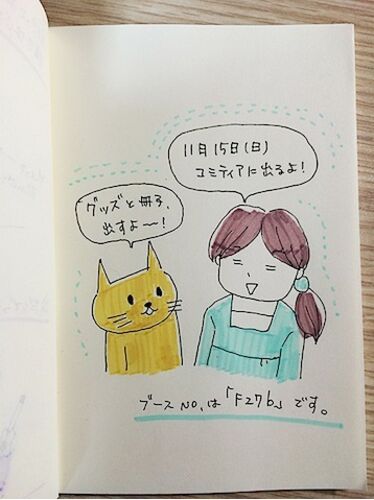 11月15日(日)
コミティアに出るよ!
グッズと冊子、
出すよ〜!
ブースNO.は「F27b」です。